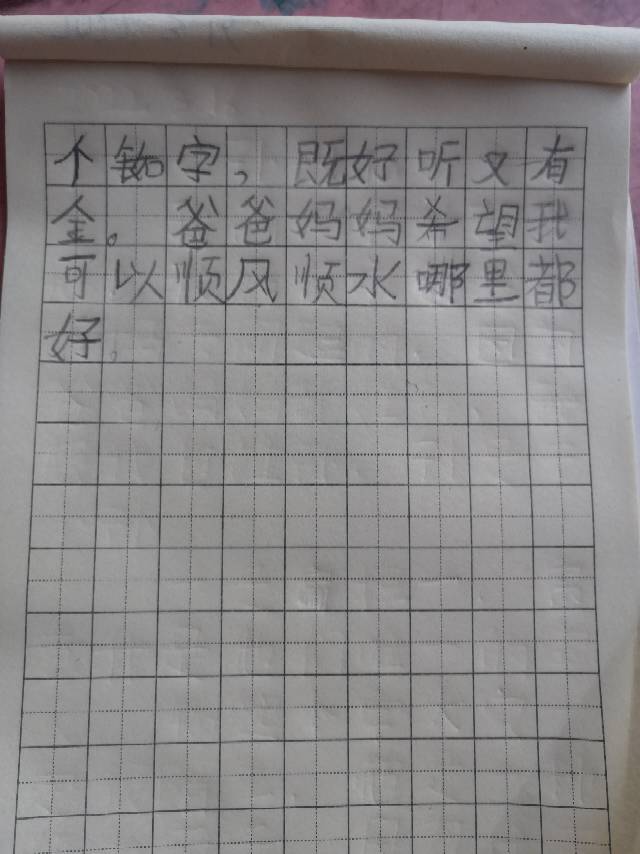 个铷字，既好听又有
金。爸爸妈妈希望我
可以顺风顺水哪里都
好。